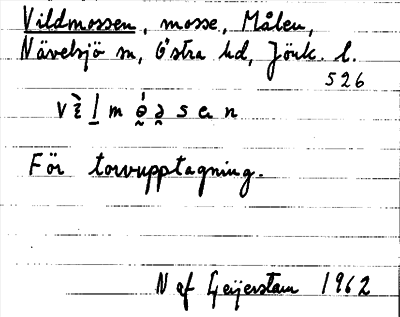 Vildmossen, mosse, Målen,
Nävelsjö sn, Östra hd, Jönk. l.
526
För torvupptagning.
N af Geijerstam 1962